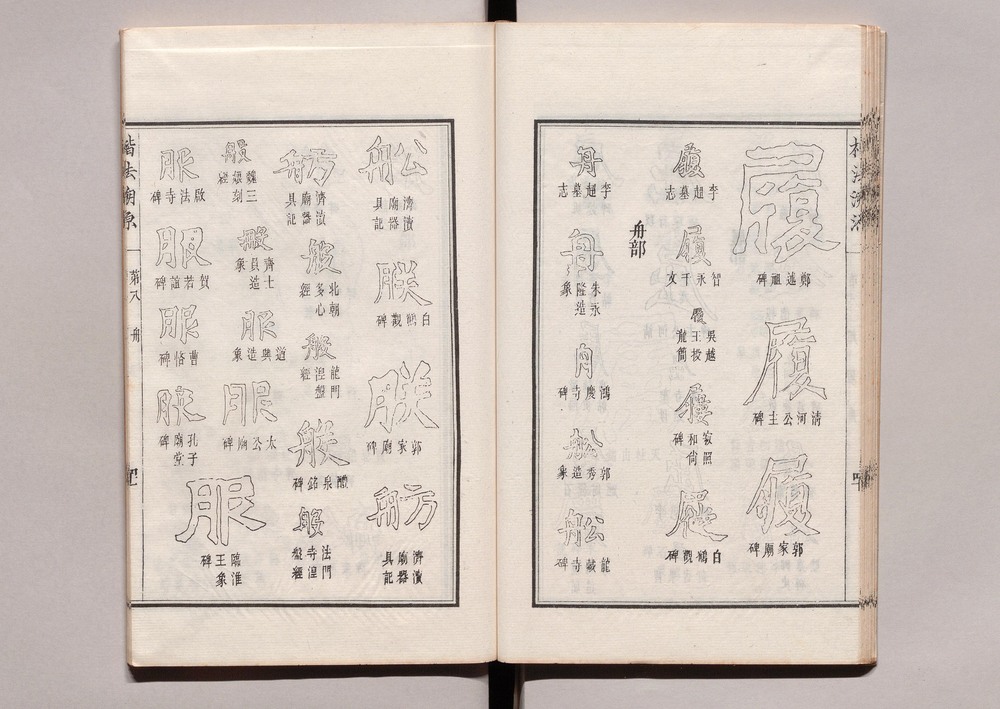 履
鄭述祖碑
履
清河公主碑
履
郭家廟碑
履
李超墓志
履
智永千文
履
吳越王投龍簡
履
寂照和尚碑
履
白鶴觀碑
舟部
舟
李超墓志
舟
朱永隆造象
舟
鴻慶寺碑
船
郭秀造象
船
龍藏寺碑
楷法溯源
第八
舟
船
濟瀆廟器具記
朕
白鶴觀碑
朕
郭家廟碑
舫
濟瀆廟器具記
舫
濟瀆廟器具記
般
北朝多心經
般
龍門涅盤經
般
醴泉銘碑
般
法門寺涅槃經
般
魏三級刻
般
齊士員造象
服
道興造象
服
太公廟碑
服
啟法寺碑
服
賀若誼碑
服
曹恪碑
服
孔子廟堂碑
服
臨淮王象碑